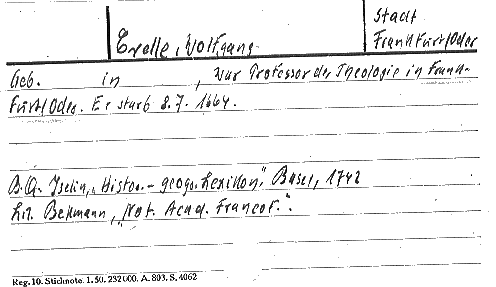 Stadt
Crelle, Wolfgang Frankfurt/Oder
Geb. in , war Professor der Theologie in Frank-
furt/Oder. Er starb 8.7. 1664.
B.G. Iselin, „Histor.- geogr. Lexikon", Basel, 1742
Lit. Bekmann, „Not. Acad. Francof.".
Reg. 10. Stichnote. 1. 50. 232000. A. 803. S. 4062